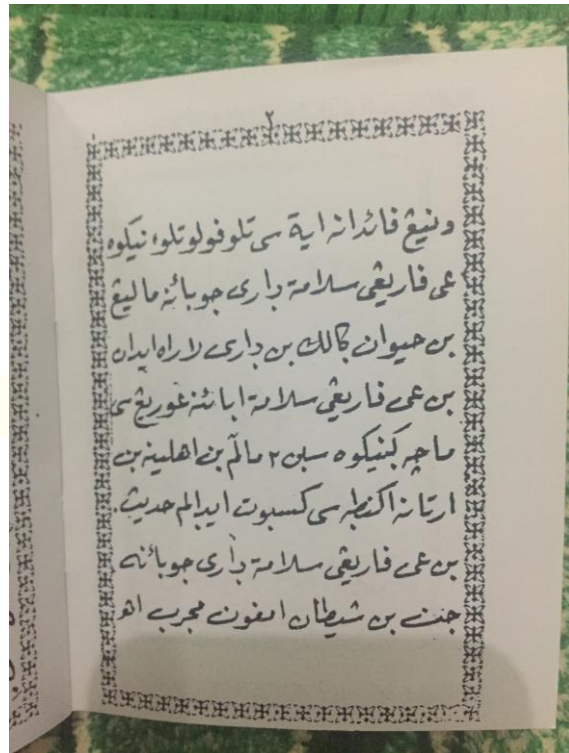 ٢
وننيڠ فائدانه اية سي تلوفولو تلو، نيكوه
عي فاريڠي سلامة داري جوبائنه ماليڠ
بن حيوان كالك بن داري لاراه ايدان
بن عي فاريڠي سلامة ابائنه غوريڠ سي
ماچه كنيكوه سبن ٢ مالم بن اهلينه بن
ارتانه اكنطه سي كسبوت ايدالم حديث.
بن عي فاريڠي سلامة داري جوبائنه
جن بن شيطان امفون مجرب اهـ